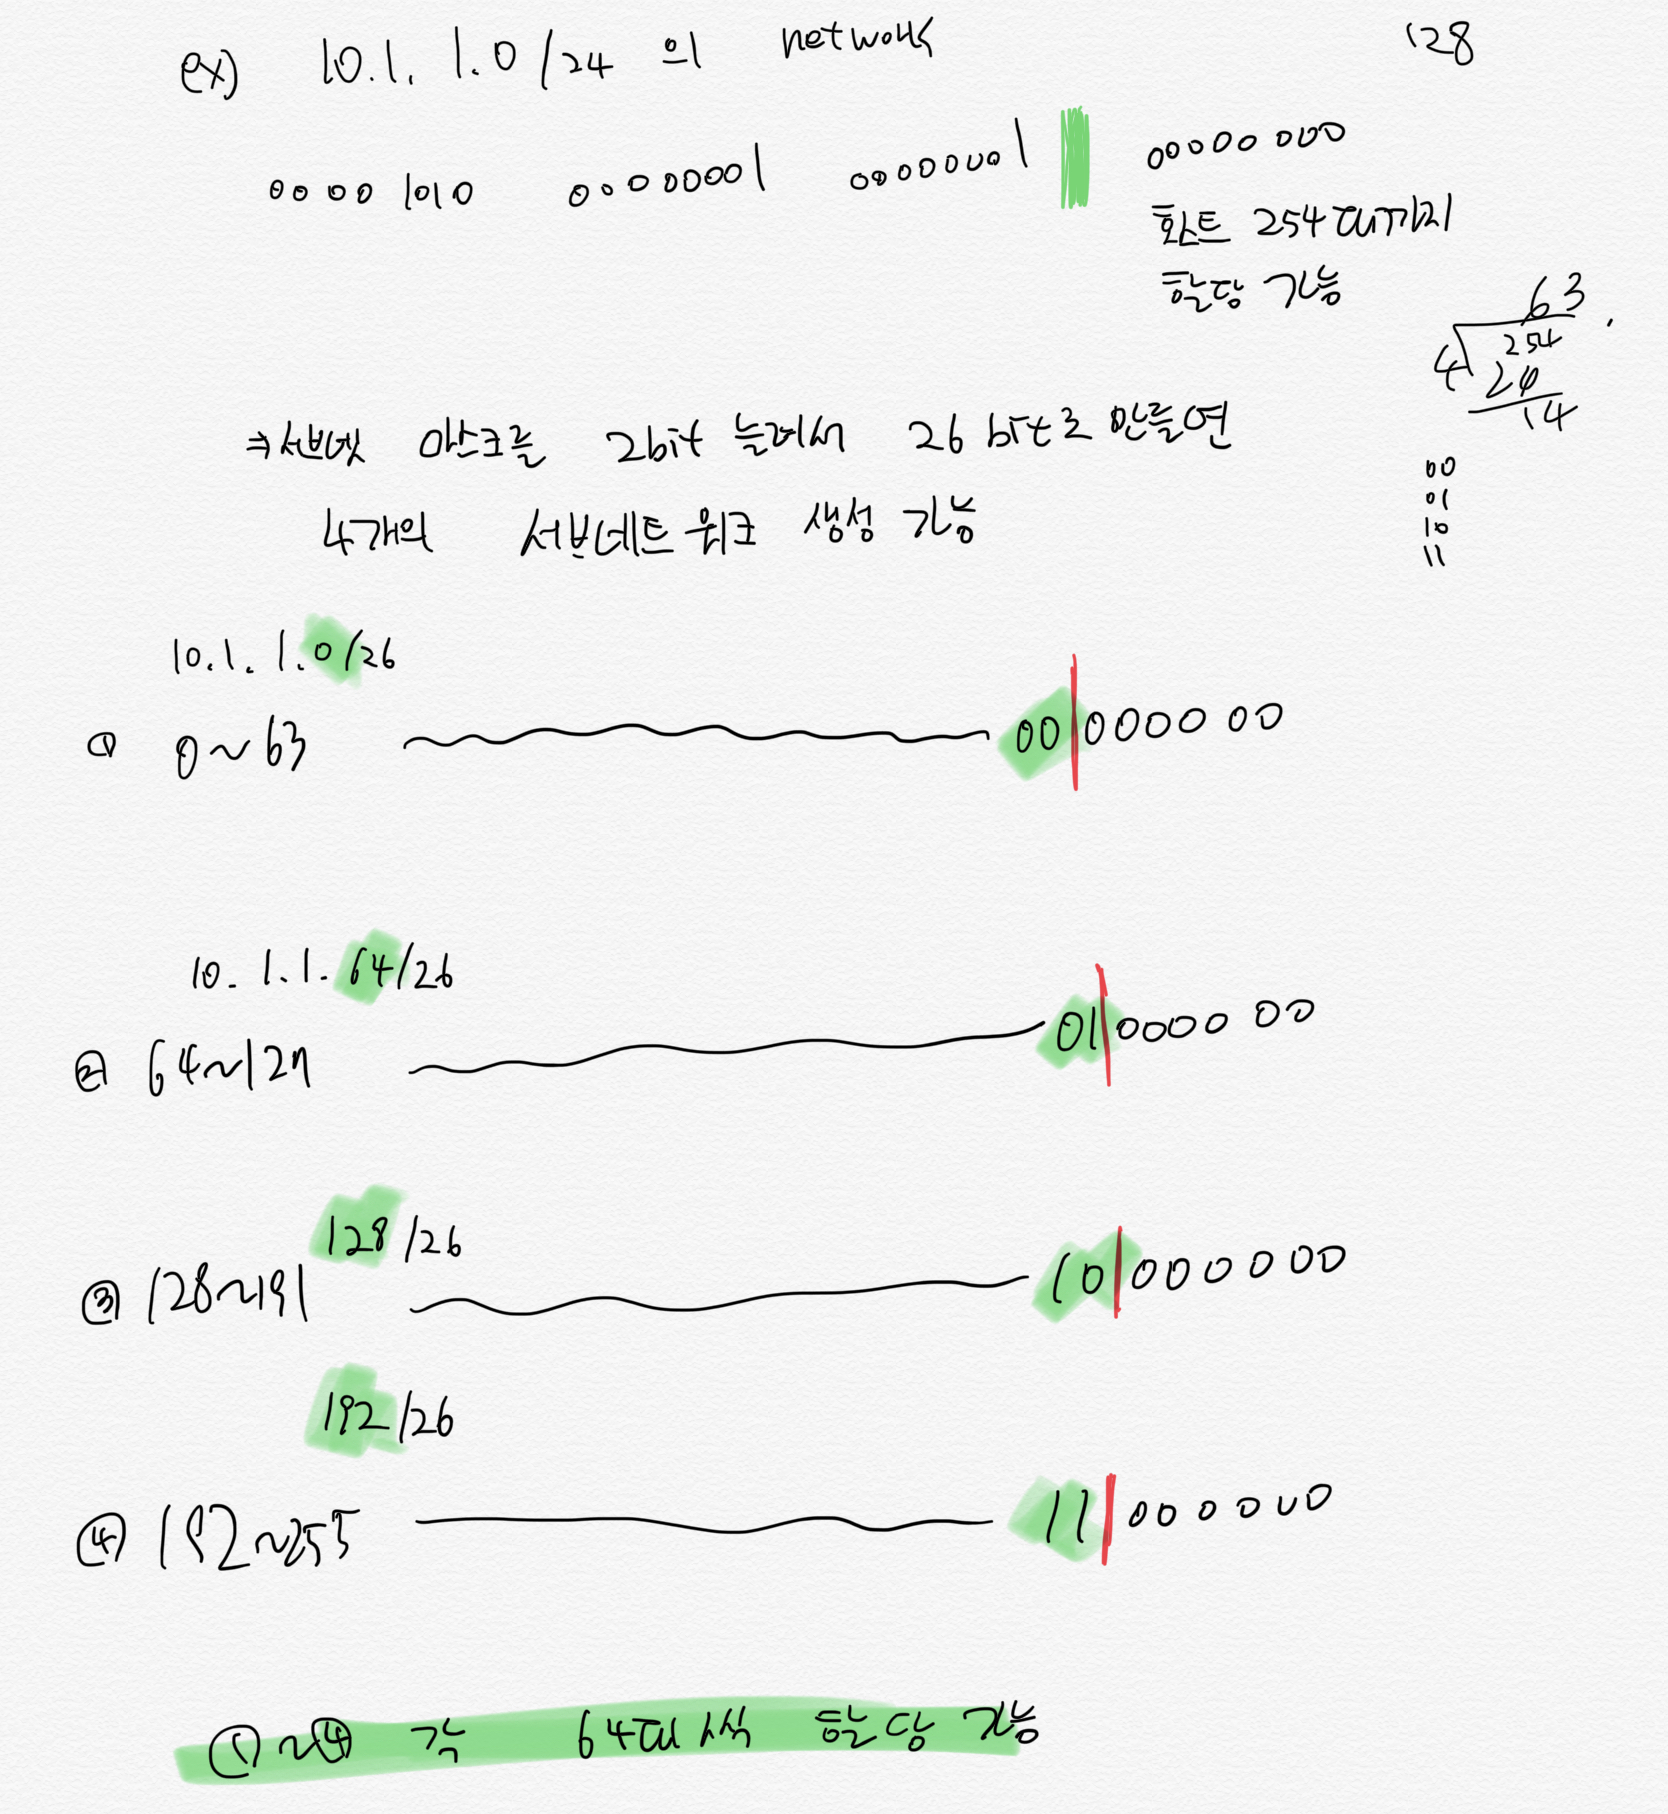 ex) 10.1.1.0/24 의 network
128
00001010 00000001 00000001 00000000
호스트 254대까지
할당 가능
63
4 254
24
14
⇒서브넷 마스크를 2bit 늘려서 26 bit로 만들면
4개의 서브네트워크 생성 가능
00
01
10
11
10.1.1.0/26
① 0~63 00 000000
10.1.1.64/26
② 64~127 01 000000
128/26
③ 128~191 10 000000
192/26
④ 192~255 11 000000
①~④ 각 64대씩 할당 가능